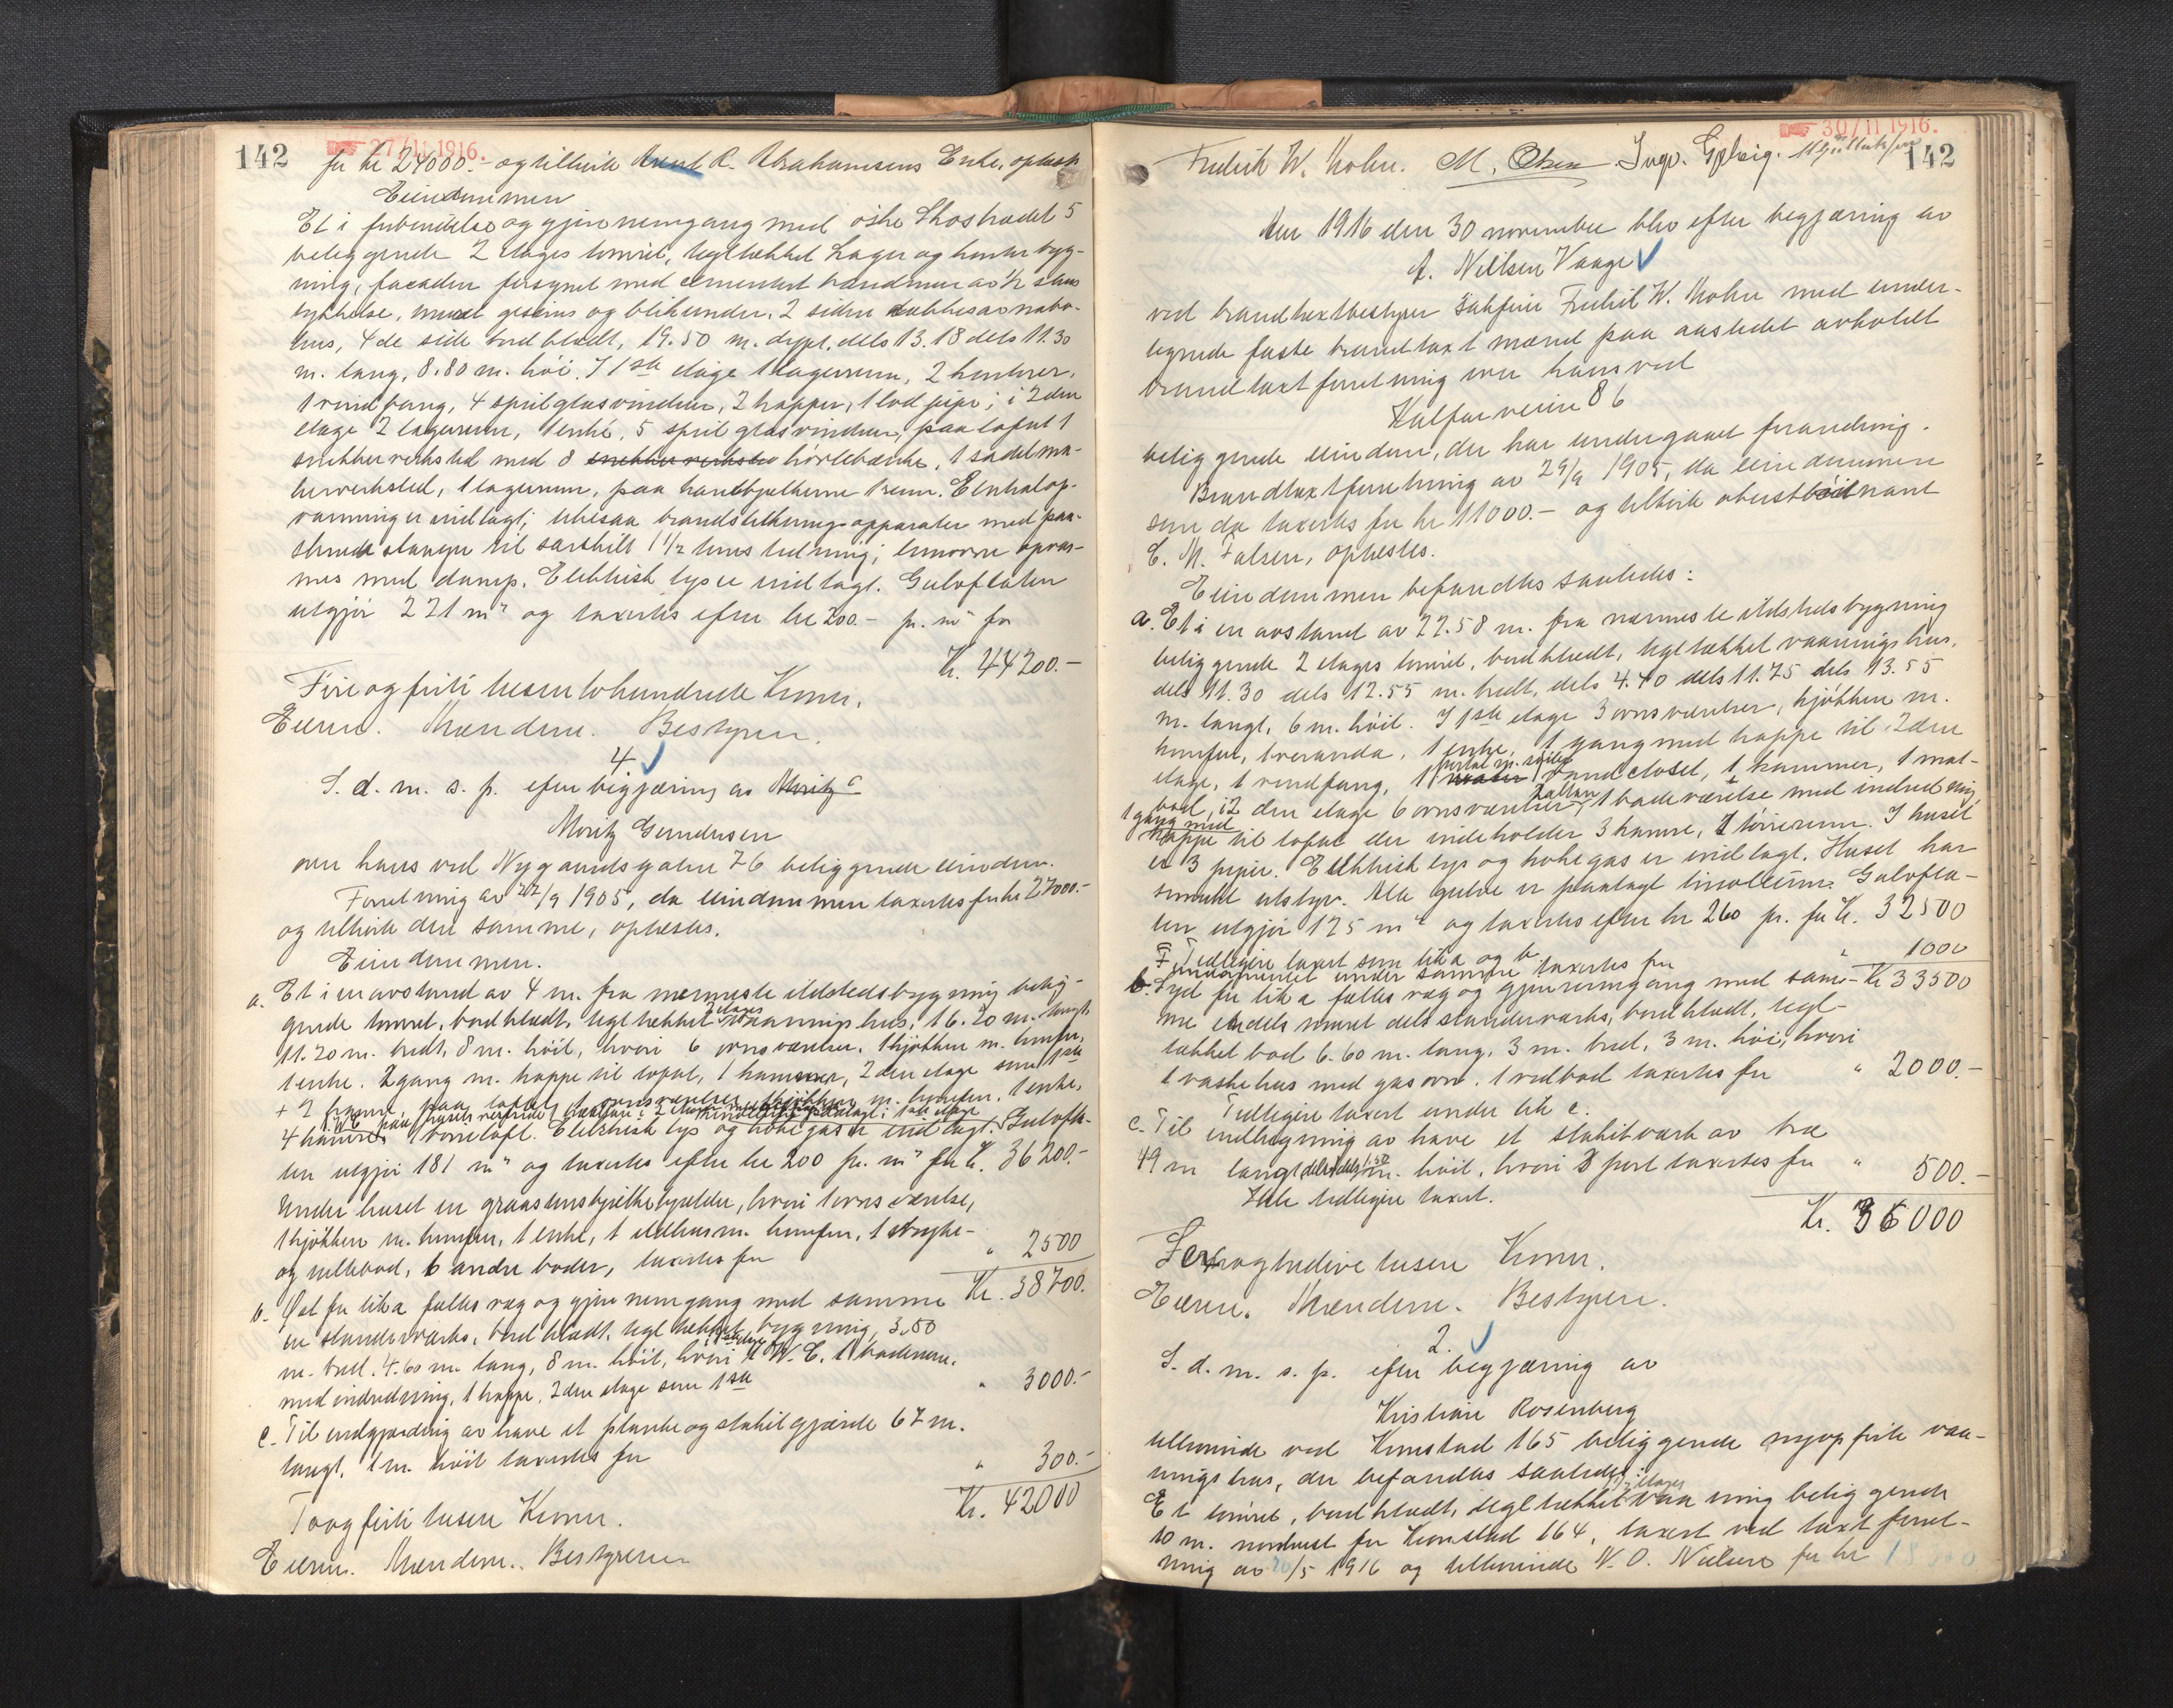 142
27/11 1916.
for kr 24000.- og tilhørte Arent R. Abrahamsens Enke, ophæves
Eiendommen
Et i forbindelse og gjennemgang med østre Skostrædet 5
beliggende 2 etages tømret, tegltækket Lager og kontorbyg-
ning, facaden forsynet med cementert brandmur av ½ stens
tykkelse, muret gesims og blikrender. 2 sider dækkes av nabo-
hus, 4de side bordklædt, 19.50 m. dypt, dels 13.18 dels 11.30
m. lang, 8.80 m. høi. I 1ste etage 1 lagerrum, 2 kontorer,
1 vindfang, 4 speilglasvinduer, 2 trapper, 1 lod pipe; i 2den
etage 2 lagerrum, 1 entre, 5 speilglasvinduer, paa loftet 1
snekkerverksted med 8 snekkerverksted høvlebænke, 1 sadelma-
kerverksted, 1 lagerrum, paa hanebjelkerne 1 rum. Centralop-
varmning er indlagt; likesaa brandslukningsapparater med paa-
skruede slanger til særskilt 1½ toms ledning; limovne opvar-
mes med damp. Elektrisk lys er indlagt. Gulvflaten
utgjør 221 m² og taxertes efter kr 200.- pr. m² for
Kr. 44200.-
Fire og firti tusen tohundrede Kroner.
Eieren. Mændene. Bestyreren.
4
S. d. m. s. p. efter begjæring av Moritz G
Moritz Gundersen
over hans ved Nygaardsgaten 76 beliggende eiendom.
Forretning av 22/9 1905, da eiendommen taxertes for kr 27000.-
og tilhørte den samme, ophæves.
Eiendommen.
a. Et i en avstand av 4 m. fra nærmeste ildstedsbygning belig-
gende tømret, bordklædt, tegltækket 2 etages vaaningshus, 16.20 m. langt,
11.20 m. bredt, 8 m. høit, hvori 6 ovnsværelser, 1 kjøkken m. komfur,
1 entre. 2 gang m. trappe til loftet, 1 kammer, 2den etage som 1ste
+ 2 kamre, paa loftet 1 ovnsværelse, 1 kjøkken m. komfur, 1 entre,
4 kamre 1 tørreloft. Elektrisk lys og kokegas er indlagt. Gulvfla-
ten utgjør 181 m² og taxertes efter kr 200 pr. m² for kr. 36200.-
Under huset en graastenskjelderkjelder, hvori 1 ovnsværelse,
1 kjøkken m. komfur, 1 entre, 1 ildhus m. komfur, 1 stryke-
og rullebod, 6 andre boder, taxertes for " 2500
Kr. 38700.
b. Øst for litra a fælles væg og gjennemgang med samme
en standerværks, bordklædt, tegltækket bygning, 3.50
m. bred, 4.60 m. lang, 8 m. høit, hvori 1 W. C. 1 baderum,
med indredning, 1 trappe, 2den etage som 1ste " 3000.-
c. Til indgjærding av have et planke og stakitgjærde 67 m.
langt, 1 m. høit taxertes for " 300.-
Kr. 42000
To og firti tusen Kroner.
Eieren. Mændene. Bestyreren
30/11 1916.
142
Fredrik W. Kohn. M. Olsen Ingv. Gjelvig.
Aar 1916 den 30 november blev efter begjæring av
A. Nielsen Vaage
ved brandtaxtbestyrer Sakfører Fredrik W. Kohn med under-
tegnede faste brandtaxtmænd paa aastedet avholdt
brandtaxtforretning over hans ved
Kalfarveien 86
beliggende eiendom, der har undergaaet forandring.
Brandtaxtforretning av 29/9 1905, da eiendommen
som da taxertes for kr 11000.- og tilhørte oberstløitnant
C. M. Falsen, ophæves.
Eiendommen befandtes saaledes:
a. Et i en avstand av 22.58 m. fra nærmeste ildstedsbygning
beliggende 2 etages tømret, bordklædt, tegltækket vaaningshus,
dels 11.30 dels 12.55 m. bredt, dels 4.40 dels 11.75 dels 13.55
m. langt, 6 m. høit. I 1ste etage 3 ovnsværelser, kjøkken m.
komfur, 1 veranda, 1 entre, 1 gang med trappe til 2den
etage, 1 vindfang, 1 vandcloset, 1 kammer, 1 mat-
bod, i 2den etage 6 ovnsværelser, 1 badeværelse med indredning
1 gang med
trappe til loftet der indeholder 3 kamre, 1 tørrerum. I huset
er 3 piper. Elektrisk lys og kokegas er indlagt. Huset har
smukt utstyr. Alle gulve er paalagt linoleum. Gulvfla-
ten utgjør 125 m² og taxertes efter kr 260 pr. for kr. 32500
Tidligere taxert som litra a og b.
Fundamentet under samme taxertes for " 1000
Kr 33500
b. Syd for litra a fælles væg og gjennemgang med sam-
me endels muret dels standerværks, bordklædt, tegl-
tækket bod 6.60 m. lang, 3 m. bred, 3 m. høi, hvori
1 vaskehus med gasovn. 1 vedbod taxertes for " 2000.-
Tidligere taxert under litr c.
c. Til indhegning av have et stakitværk av træ
49 m langt dels 1 dels 1.50 m. høit, hvori 3 port taxertes for " 500.-
Ikke tidligere taxert.
Kr. 36000
Sex og tredive tusen Kroner.
Eieren. Mændene. Bestyreren.
2.
S. d. m. s. p. efter begjæring av
Kristian Rosenberg
tilhørende ved Kronstad 165 beliggende nyopførte vaa-
ningshus, der befandtes saaledes:
Et tømret, bordklædt, tegltækket 1½ etages vaaning beliggende
10 m. nordvest for Kronstad 164, taxert ved taxtforret-
ning av 20/5 1916 og tilhørende N. O. Nielsen for kr